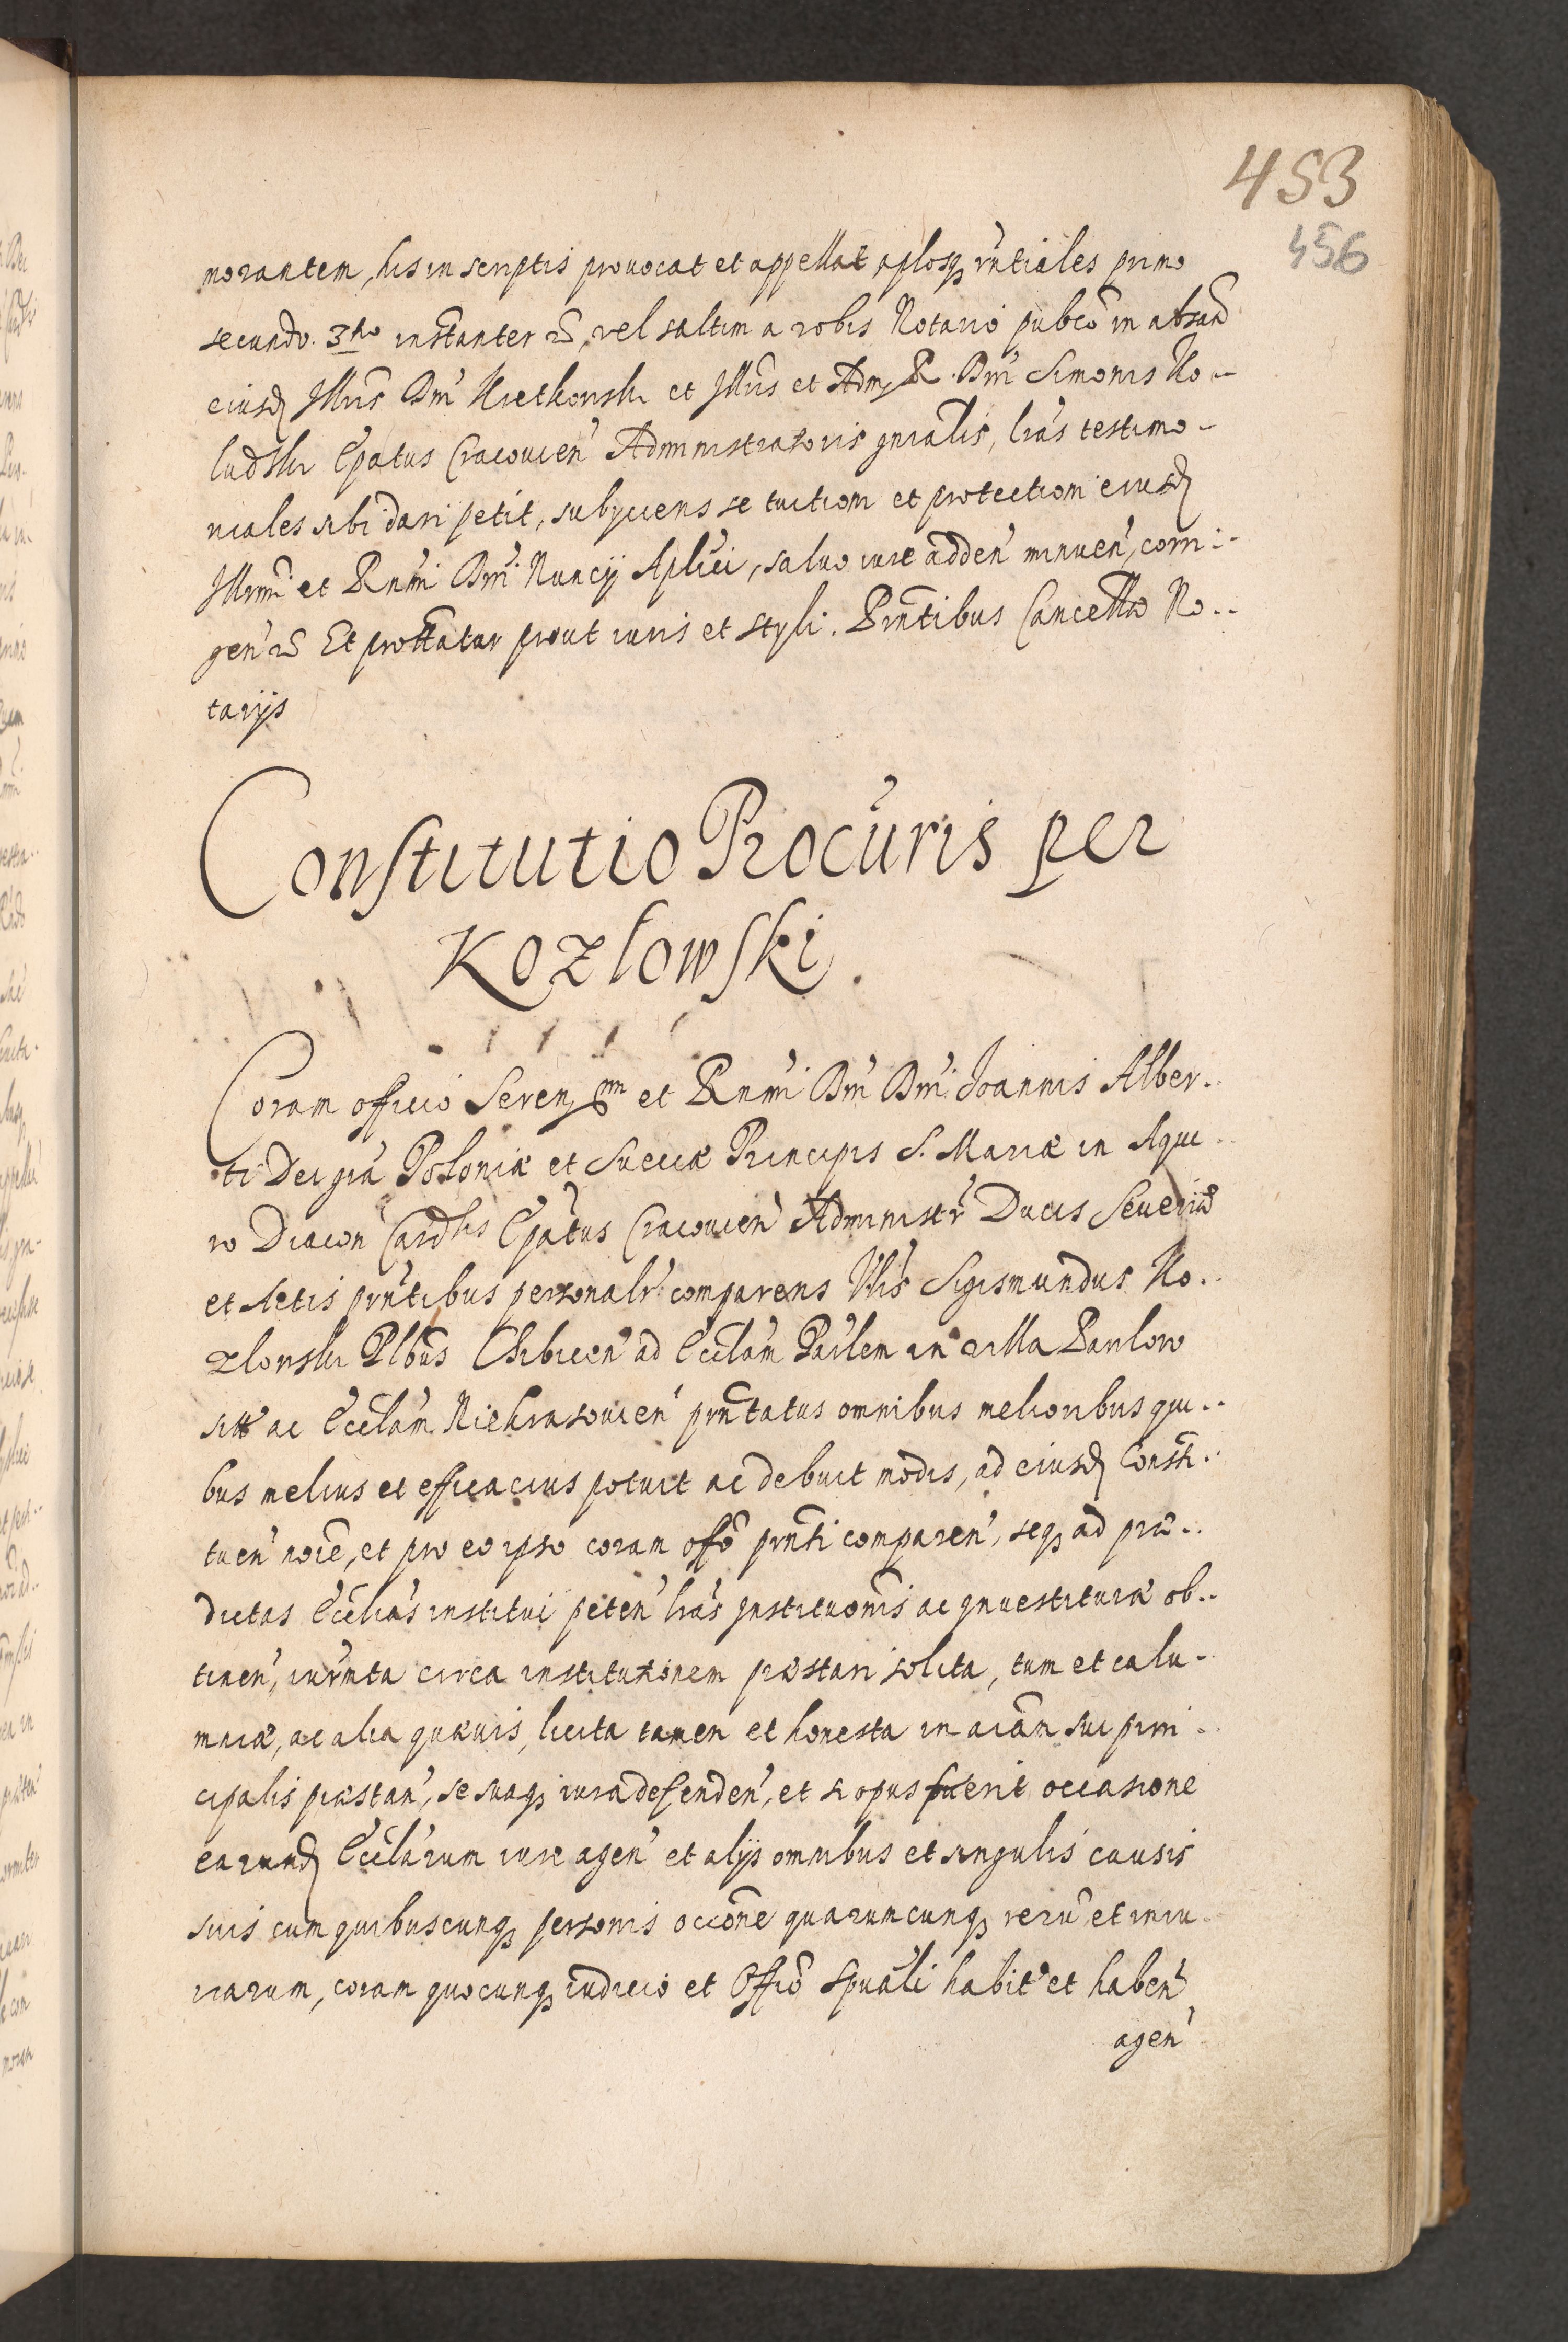 453
456
morantem, his in scriptis prouocat et appellat, aplosq̨ rñtiales primo
secundo. 3tio instanter &c̃, vel saltim a vobis Notario pubco in absañ
eiusd̨ Illris Dni Kretkowski et Illris et Adm R. Dni Simonis Ko-
ludzki Epatus Cracouien' Administratoris gnralis, lras testimo-
niales sibi dari petit, subyciens se tuitioni et protectioni eiusd̨
Illrmi et Rndmi Dni Nuncij Aplici, saluo iure adden' minuen', corri-
gen' &c̃ Et prottatur prout iuris et styli. Pntibus Cancellæ No-
tarijs
Constitutio Procuris per
Kozlowski.
Coram officio Serenssmi et Rndmi Dni Dni Joannis Alber-
ti Dei gra Poloniæ et Sueciæ Principis S. Mariæ in Aqui-
ro Diacon Cardlis Epatus Cracouien' Administr Ducis Seueriæ
et Actis pntibus personalr comparens Vlis Sigismundus Ko-
zlowski Plbus Chibicen' ad Ecclam Parlem in villa Pawlow
sitt ac Ecclam Niekrasouien' pntatus omnibus melioribus qui-
bus melius et efficacius potuit ac debuit modis, ad eiusd̨ Consti-
tuen' noie, et pro eo ipso coram offo pnti comparen', seq̨ ad præ-
dictas Ecclias institui peten' lras Institutionis ac Inuestituræ ob-
tinen', iurmta circa institutionem præstari solita, tum et calu-
mniæ, ac alia quæuis, licita tamen et honesta in aiam sui prin-
cipalis præstan', se suaq̨ iura defenden', et si opus fuerit occasione
earund̨ Ecclarum iure agen' et alijs omnibus et singulis causis
suis cum quibuscunq̨ personis occone quarumcunq̨ rerũ et iniu-
riarum, coram quocunq̨ iudicio et Offio Spuali habit' et haben'
agen'